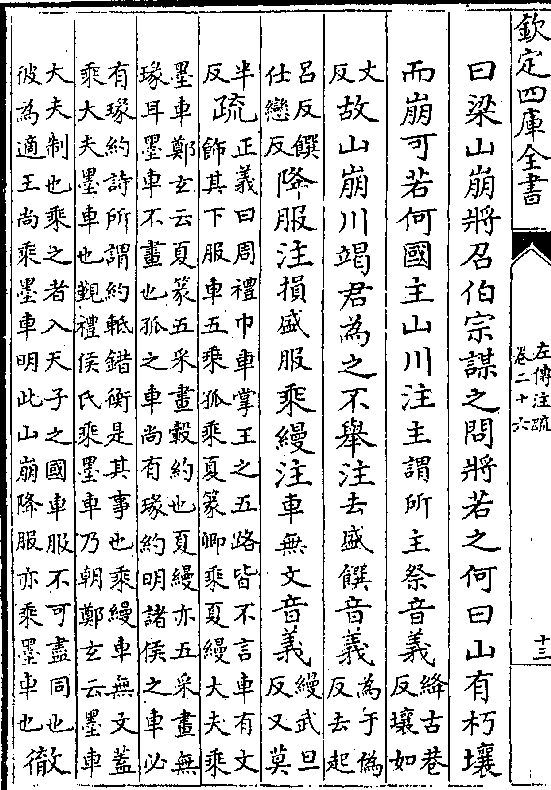 欽定四庫全書
左傳注疏
卷二十六
十三
曰梁山崩將召伯宗謀之問將若之何曰山有朽壤
而崩可若何國主山川注主謂所主祭音義絳古巷
反壤如
丈
反故山崩川竭君為之不舉注去盛饌音義為于偽
反去起
呂反饌
仕戀反降服注損盛服乘縵注車無文音義縵武旦
反又莫
半
反疏正義曰周禮巾車掌王之五路皆不言車有文
飾其下服車五乘孤乘夏篆卿乘夏縵大夫乘
墨車鄭玄云夏篆五采畫轂約也夏縵亦五采畫無
瑑耳墨車不畫也孤之車尚有瑑約明諸侯之車必
有瑑約詩所謂約軝錯衡是其事也乘縵車無文蓋
乘大夫墨車也覲禮侯氏乘墨車乃朝鄭玄云墨車
大夫制也乘之者入天子之國車服不可盡同也
彼為適王尚乘墨車明此山崩降服亦乘墨車也徹